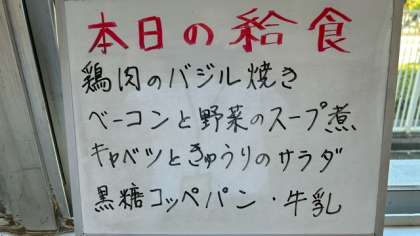 本日の給食
鶏肉のバジル焼き
ベーコンと野菜のスープ煮
キャベツときゅうりのサラダ
黒糖コッペパン・牛乳